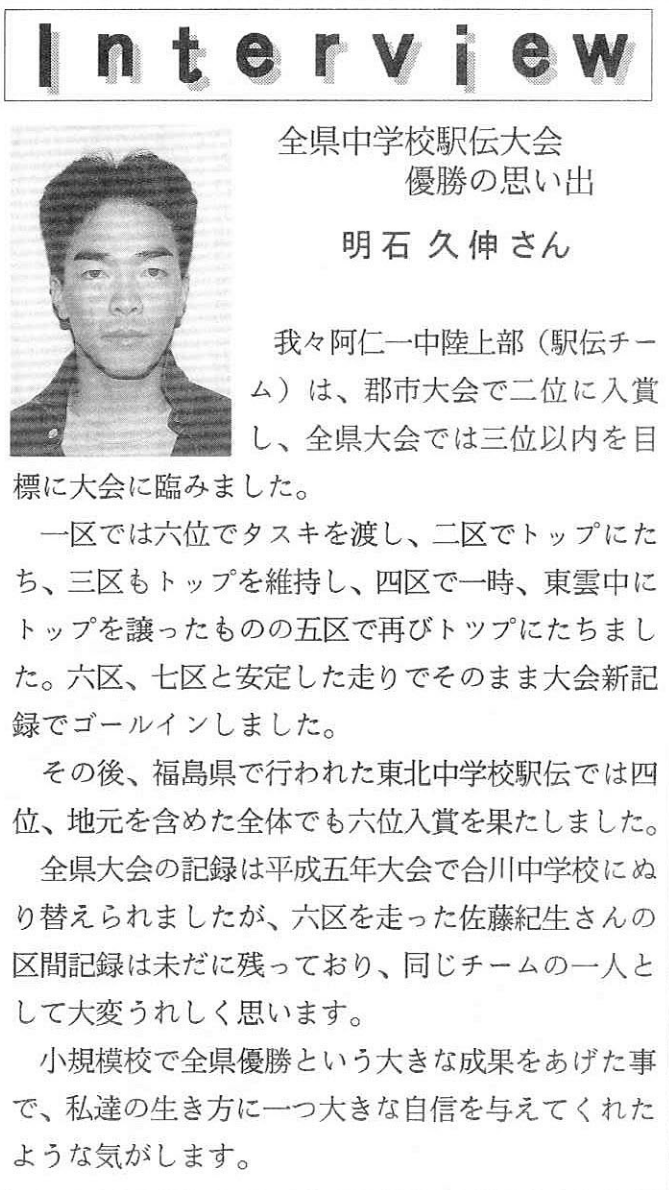 Interview
全県中学校駅伝大会
優勝の思い出
明石 久伸さん
我々阿仁一中陸上部（駅伝チー
ム）は、郡市大会で二位に入賞
し、全県大会では三位以内を目
標に大会に臨みました。
一区では六位でタスキを渡し、二区でトップにた
ち、三区もトップを維持し、四区で一時、東雲中に
トップを譲ったものの五区で再びトツプにたちまし
た。六区、七区と安定した走りでそのまま大会新記
録でゴールインしました。
その後、福島県で行われた東北中学校駅伝では四
位、地元を含めた全体でも六位入賞を果たしました。
全県大会の記録は平成五年大会で合川中学校にぬ
り替えられましたが、六区を走った佐藤紀生さんの
区間記録は未だに残っており、同じチームの一人と
して大変うれしく思います。
小規模校で全県優勝という大きな成果をあげた事
で、私達の生き方に一つ大きな自信を与えてくれた
ような気がします。